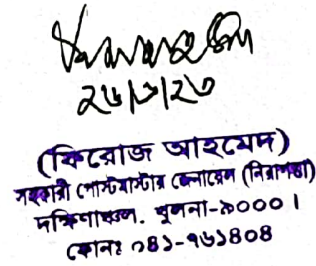 ২৬/৩/২৩
(ফিরোজ আহমেদ)
সহকারী পোস্টমাস্টার জেনারেল (নিরাপত্তা)
দক্ষিণাঞ্চল, খুলনা-৯০০০।
ফোনঃ ০৪১-৭৬১৪০৪